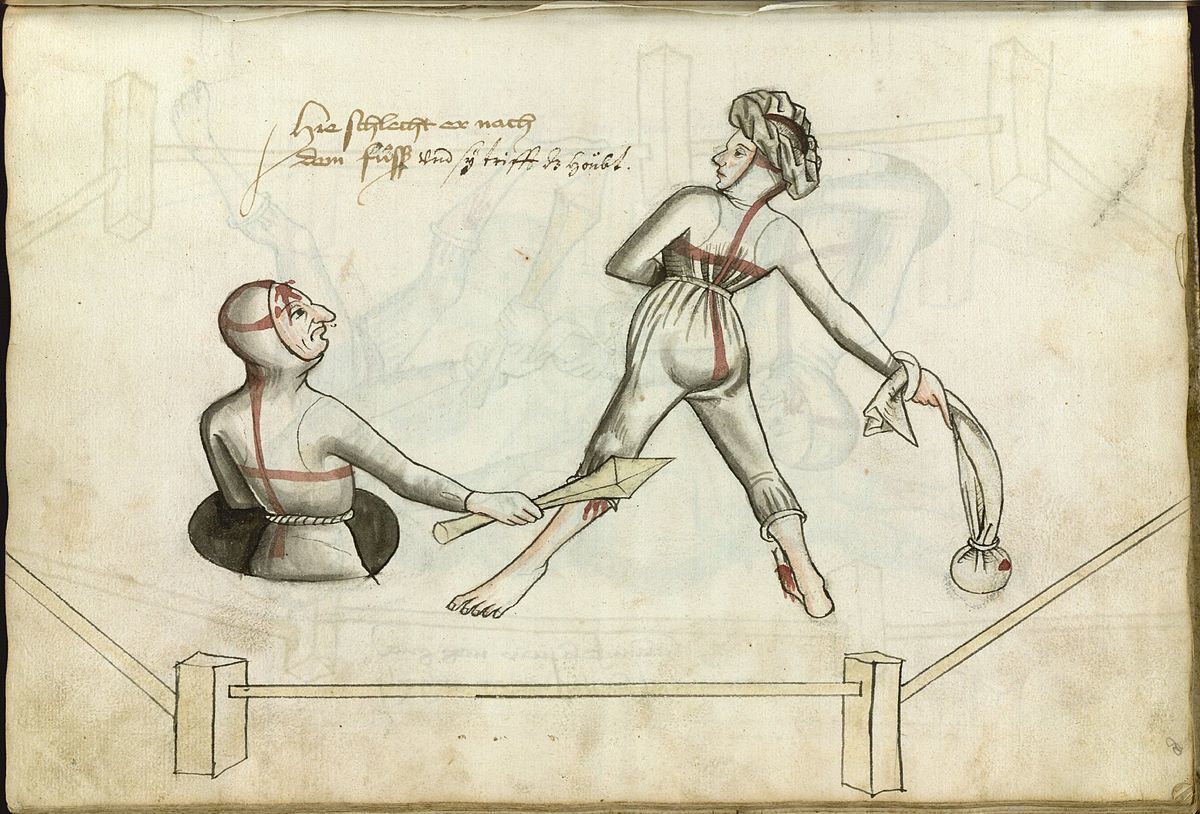 Hie schlecht er nach
dem füss vnd sy trifft dz houbt.